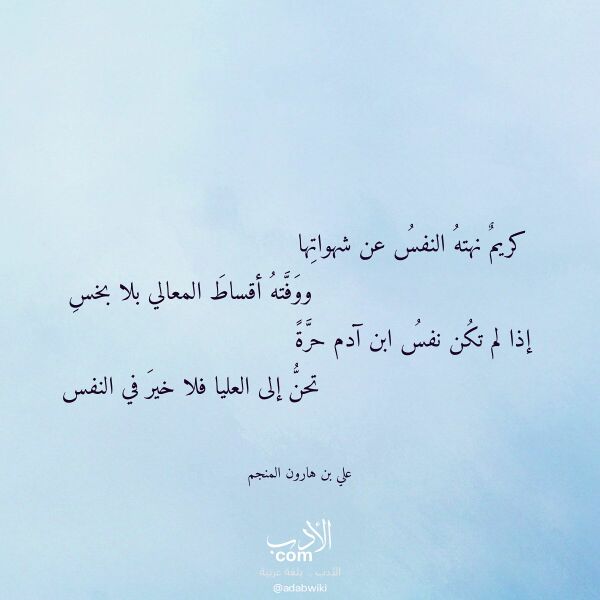 كريمٌ نهتهُ النفسُ عن شهواتِها
ووَفَّتهُ أقساطَ المعالي بلا بخسِ
إذا لم تكُن نفسُ ابن آدم حرَّةً
تحنُّ إلى العليا فلا خيرَ في النفس
علي بن هارون المنجم
الأدب
com
الأدب .. بلغة عربية
@adabwiki